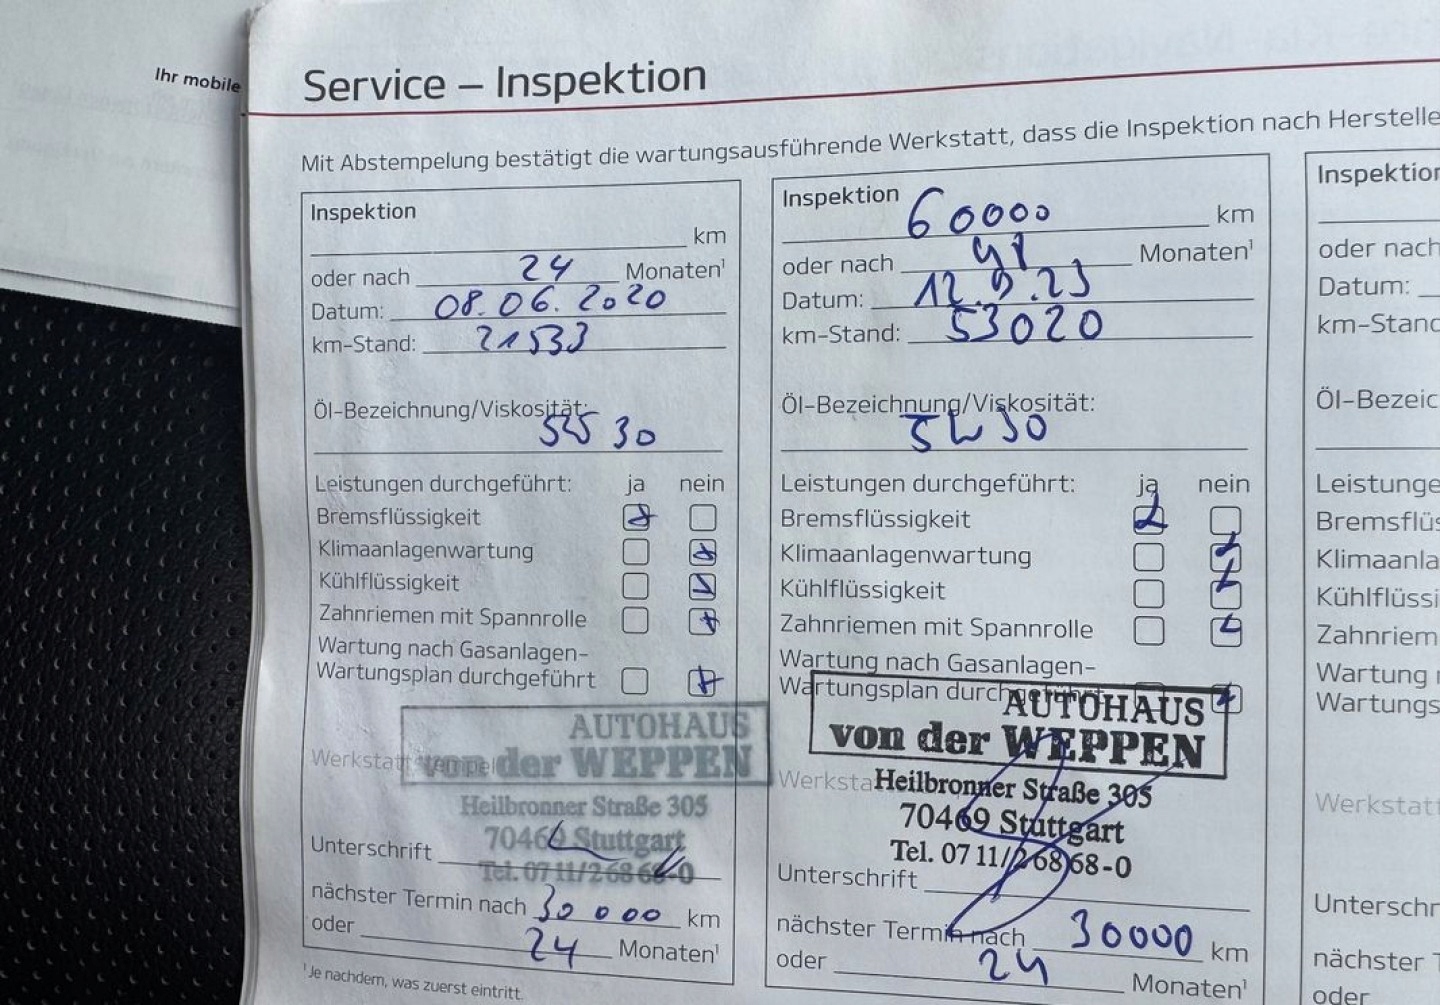 Ihr mobile
Service – Inspektion
Mit Abstempelung bestätigt die wartungsausführende Werkstatt, dass die Inspektion nach Herstelle
Inspektion
km
oder nach 24 Monaten¹
Datum: 08.06.2020
km-Stand: 21533
Öl-Bezeichnung/Viskosität:
5W 30
Leistungen durchgeführt: ja nein
Bremsflüssigkeit
Klimaanlagenwartung
Kühlflüssigkeit
Zahnriemen mit Spannrolle
Wartung nach Gasanlagen-
Wartungsplan durchgeführt
AUTOHAUS
von der WEPPEN
Werkstattstempel
Heilbronner Straße 305
70469 Stuttgart
Tel. 07 11/2 68 68-0
Unterschrift
nächster Termin nach 30 000 km
oder 24 Monaten¹
¹Je nachdem, was zuerst eintritt.
Inspektion 60000 km
oder nach Monaten¹
Datum: 12.9.23
km-Stand: 53020
Öl-Bezeichnung/Viskosität:
5W30
Leistungen durchgeführt: ja nein
Bremsflüssigkeit
Klimaanlagenwartung
Kühlflüssigkeit
Zahnriemen mit Spannrolle
Wartung nach Gasanlagen-
Wartungsplan durchgeführt
AUTOHAUS
von der WEPPEN
Werksta
Heilbronner Straße 305
70469 Stuttgart
Tel. 07 11/2 68 68-0
Unterschrift
nächster Termin nach 30000 km
oder 24 Monaten¹
Inspektion
oder nach
Datum:
km-Stand
Öl-Bezeic
Leistunge
Bremsflüs
Klimaanla
Kühlflüssi
Zahnriem
Wartung n
Wartungs
Werkstatt
Unterschr
nächster T
oder